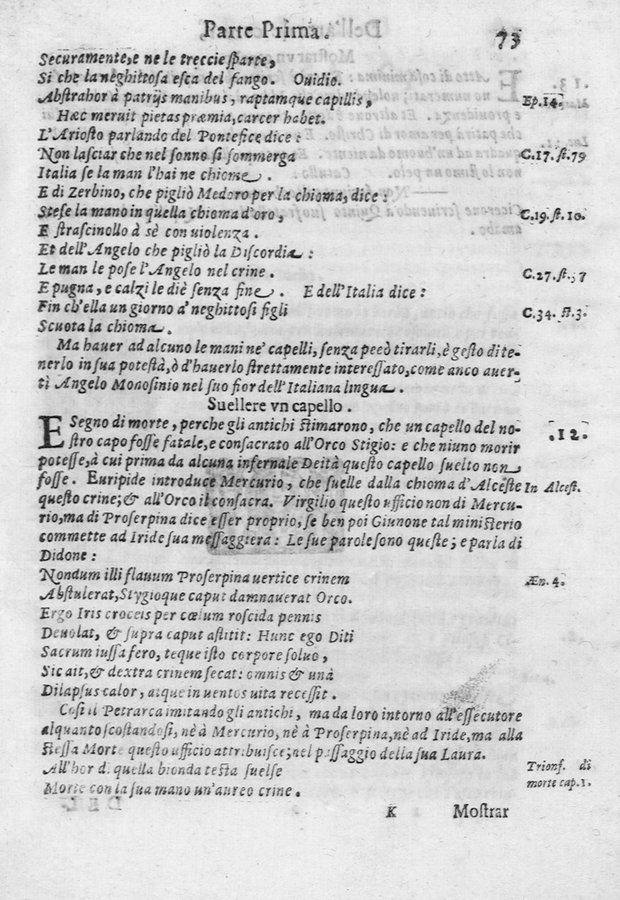 Parte Prima. 73
Securamente, e ne le treccie sparte,
Si che la neghittosa esca del fango. Ouidio.
Abstrahor à patrijs manibus, raptamque capillis, Ep.14.
Hæc meruit pietas præmia, carcer habet.
L'Ariosto parlando del Pontefice dice:
Non lasciar che nel sonno si sommerga C.17. st.79
Italia se la man l'hai ne chiome.
E di Zerbino, che pigliò Medoro per la chioma, dice:
Stese la mano in quella chioma d'oro, C.19. st.10.
E strascinollo à sè con uiolenza.
Et dell'Angelo che pigliò la Discordia:
Le man le pose l'Angelo nel crine. C.27. st.37
E pugna, e calzi le diè senza fine. E dell'Italia dice:
Fin ch'ella un giorno a' neghittosi figli C.34. st.3.
Scuota la chioma.
Ma hauer ad alcuno le mani ne' capelli, senza però tirarli, è gesto di te-
nerlo in sua potestà, ò d'hauerlo strettamente interessato, come anco auer-
tì Angelo Monosinio nel suo fior dell'Italiana lingua.
Suellere vn capello.
E Segno di morte, perche gli antichi stimarono, che un capello del no- .12.
stro capo fosse fatale, e consacrato all'Orco Stigio: e che niuno morir
potesse, à cui prima da alcuna infernale Deità questo capello suelto non
fosse. Euripide introduce Mercurio, che suelle dalla chioma d'Alceste In Alcest.
questo crine; & all'Orco il consacra. Virgilio questo ufficio non di Mercu-
rio, ma di Proserpina dice esser proprio, se ben poi Giunone tal ministerio
commette ad Iride sua messaggiera: Le sue parole sono queste; e parla di
Didone:
Nondum illi flauum Proserpina uertice crinem Æn. 4.
Abstulerat, Stygioque caput damnauerat Orco.
Ergo Iris croceis per cœlum roscida pennis
Deuolat, & supra caput astitit: Hunc ego Diti
Sacrum iussa fero, teque isto corpore soluo,
Sic ait, & dextra crinem secat: omnis & unà
Dilapsus calor, atque in uentos uita recessit.
Cosi il Petrarca imitando gli antichi, ma da loro intorno all'essecutore
alquanto scostandosi, nè à Mercurio, nè à Proserpina, nè ad Iride, ma alla
stessa Morte questo ufficio attribuisce; nel passaggio della sua Laura.
All'hor di quella bionda testa suelse Trionf. di
Morte con la sua mano un'aureo crine. morte cap.1.
K Mostrar